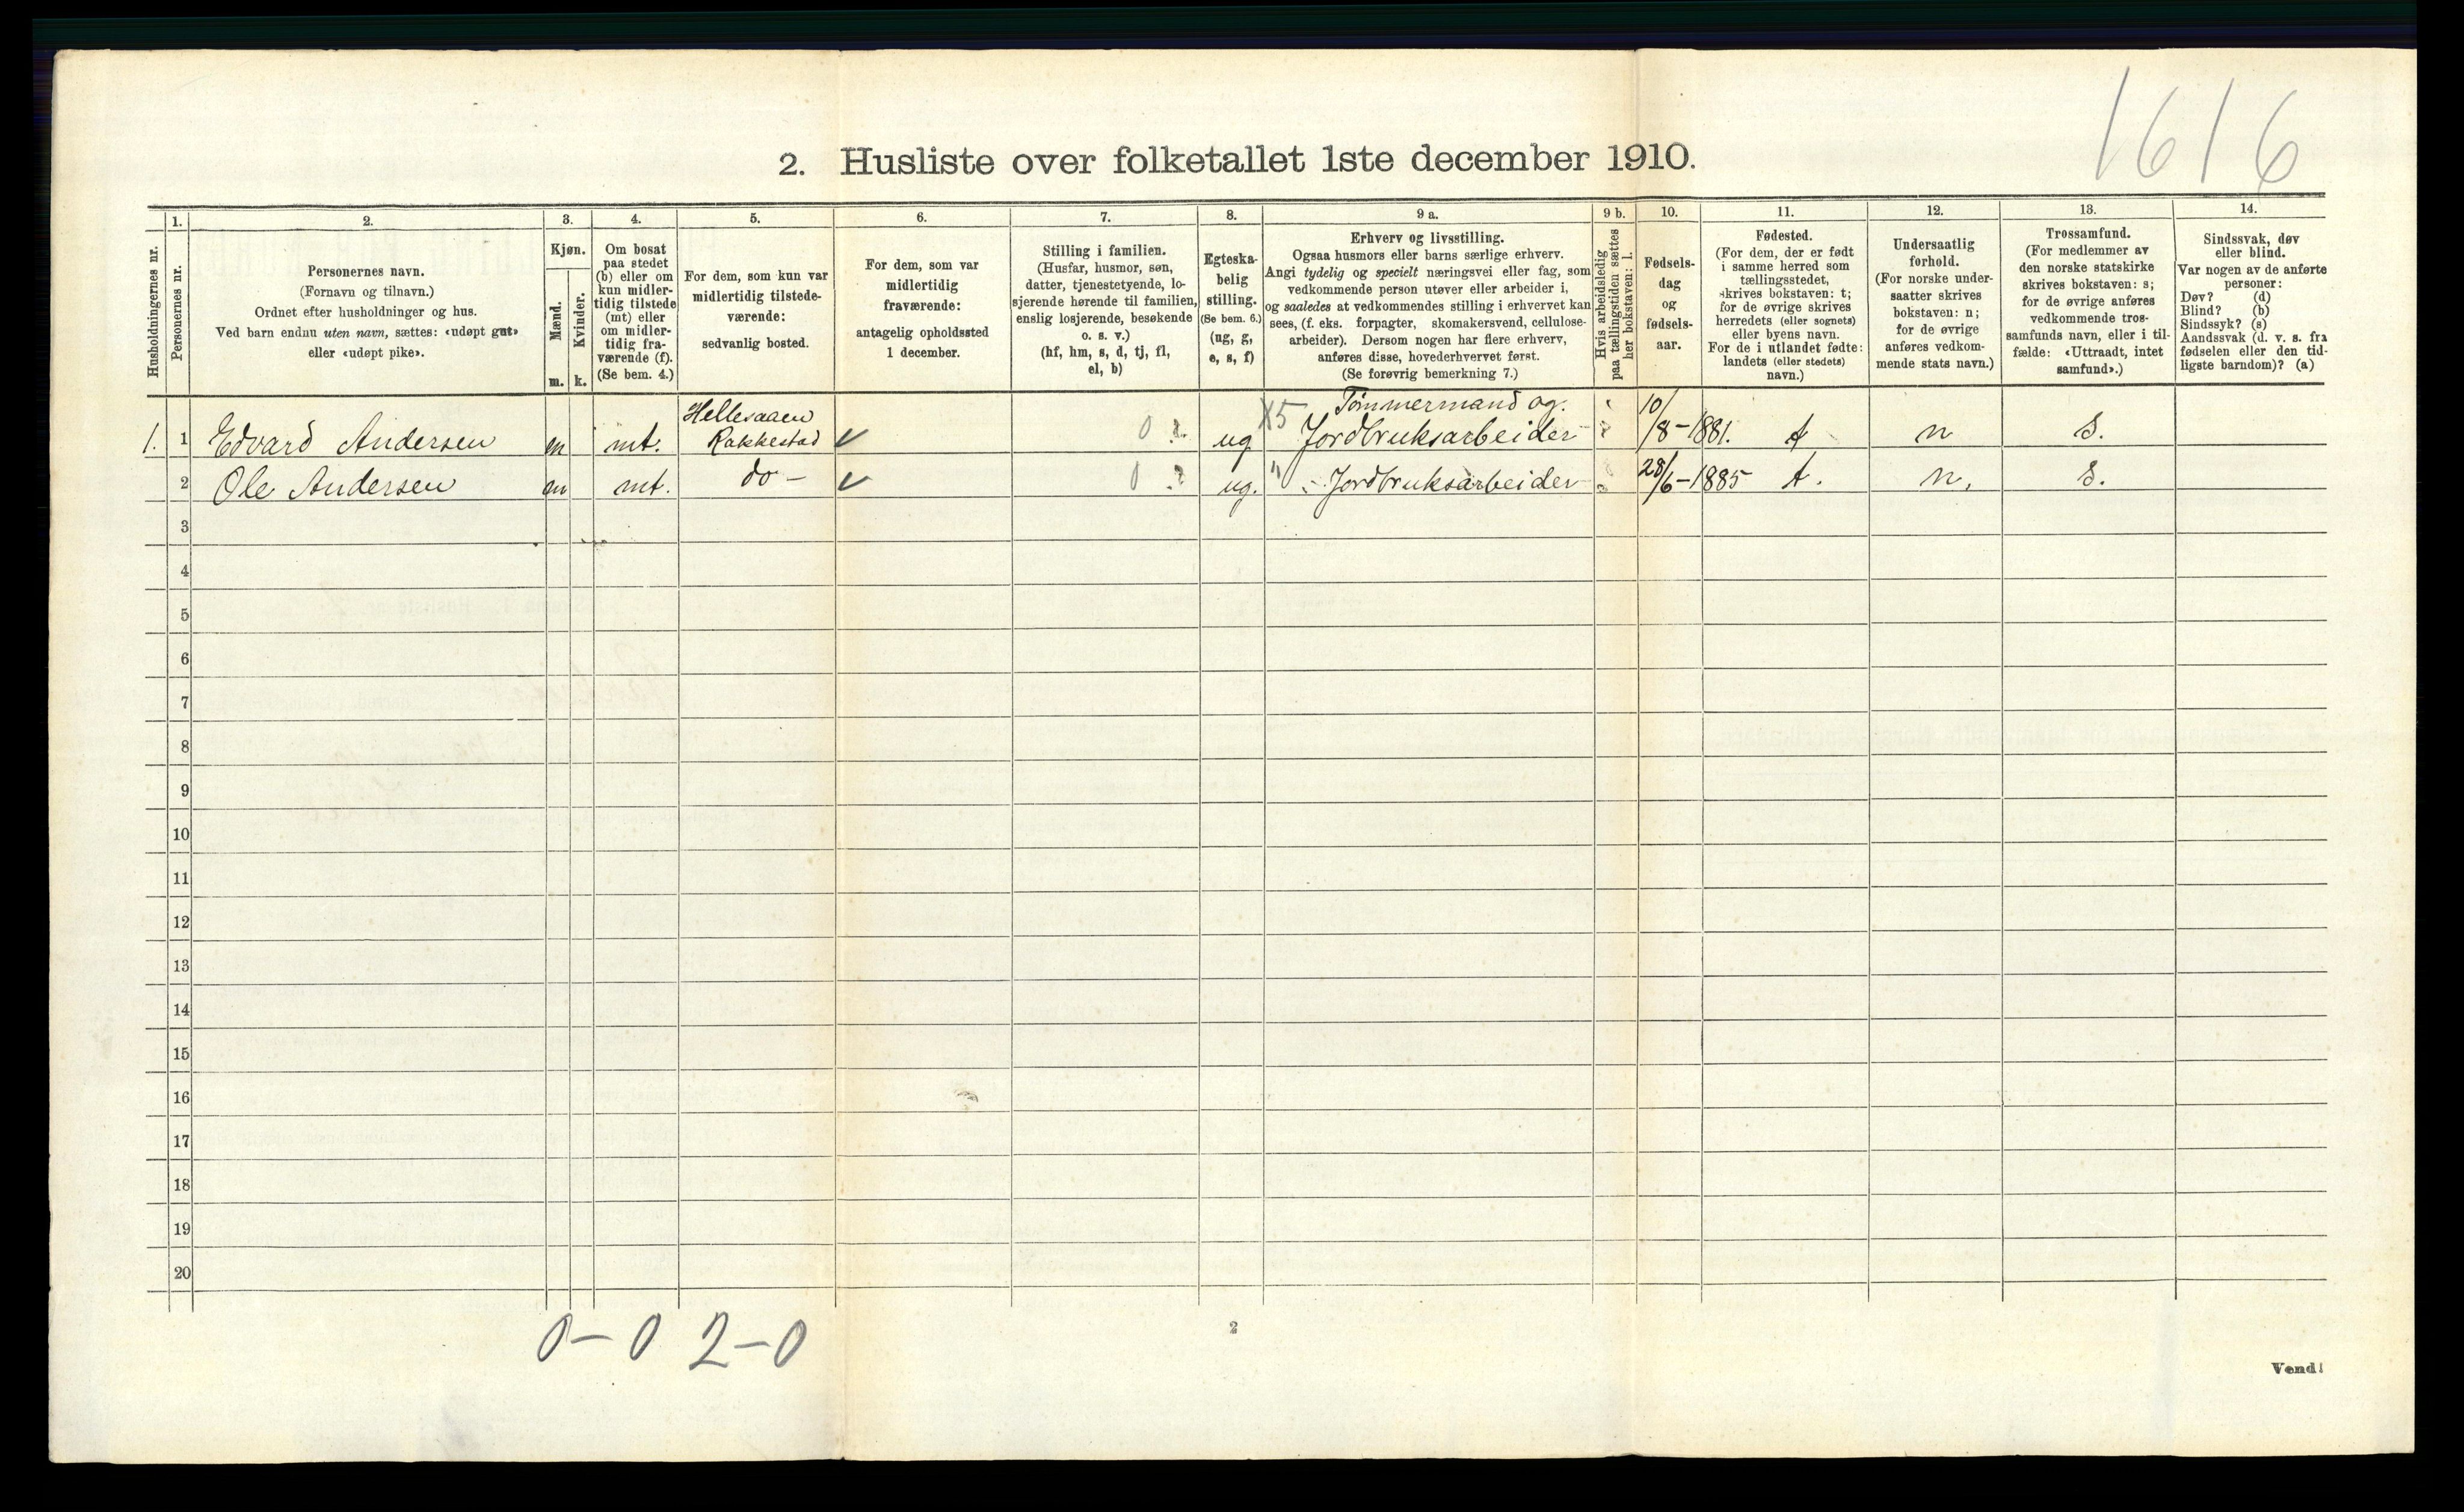 1616
2. Husliste over folketallet 1ste december 1910.
Husholdningernes nr.
1.
Personernes nr.
2.
Personernes navn.
(Fornavn og tilnavn.)
Ordnet efter husholdninger og hus.
Ved barn endnu uten navn, sættes: «udøpt gut»
eller «udøpt pike».
3.
Kjøn.
Mænd.
m.
Kvinder.
k.
4.
Om bosat
paa stedet
(b) eller om
kun midler-
tidig tilstede
(mt) eller
om midler-
tidig fra-
værende (f).
(Se bem. 4.)
5.
For dem, som kun var
midlertidig tilstede-
værende:
sedvanlig bosted.
6.
For dem, som var
midlertidig
fraværende:
antagelig opholdssted
1 december.
7.
Stilling i familien.
(Husfar, husmor, søn,
datter, tjenestetyende, lo-
sjerende hørende til familien,
enslig losjerende, besøkende
o. s. v.)
(hf, hm, s, d, tj, fl,
el, b)
8.
Egteska-
belig
stilling.
(Se bem. 6.)
(ug, g,
e, s, f)
9 a.
Erhverv og livsstilling.
Ogsaa husmors eller barns særlige erhverv.
Angi tydelig og specielt næringsvei eller fag, som
vedkommende person utøver eller arbeider i,
og saaledes at vedkommendes stilling i erhvervet kan
sees, (f. eks. forpagter, skomakersvend, cellulose-
arbeider). Dersom nogen har flere erhverv,
anføres disse, hovederhvervet først.
(Se forøvrig bemerkning 7.)
9 b.
Hvis arbeidsledig
paa tællingstiden sættes
her bokstaven: l.
10.
Fødsels-
dag
og
fødsels-
aar.
11.
Fødested.
(For dem, der er født
i samme herred som
tællingsstedet,
skrives bokstaven: t;
for de øvrige skrives
herredets (eller sognets)
eller byens navn.
For de i utlandet fødte:
landets (eller stedets)
navn.)
12.
Undersaatlig
forhold.
(For norske under-
saatter skrives
bokstaven: n;
for de øvrige
anføres vedkom-
mende stats navn.)
13.
Trossamfund.
(For medlemmer av
den norske statskirke
skrives bokstaven: s;
for de øvrige anføres
vedkommende tros-
samfunds navn, eller i til-
fælde: «Uttraadt, intet
samfund».)
14.
Sindssvak, døv
eller blind.
Var nogen av de anførte
personer:
Døv? (d)
Blind? (b)
Sindssyk? (s)
Aandssvak (d. v. s. fra
fødselen eller den tid-
ligste barndom)? (a)
Hellesaaen Tømmermand og.
1. 1 Edvard Andersen m mt. Rakkestad 0 ? ug X5 Jordbruksarbeider 10/8-1881. t n s.
2 Ole Andersen m mt. do - 0 ? ug. " Jordbruksarbeider 28/6-1885 t. n. s.
3
4
5
6
7
8
9
10
11
12
13
14
15
16
17
18
19
20
0-0 2-0
2
Vend!